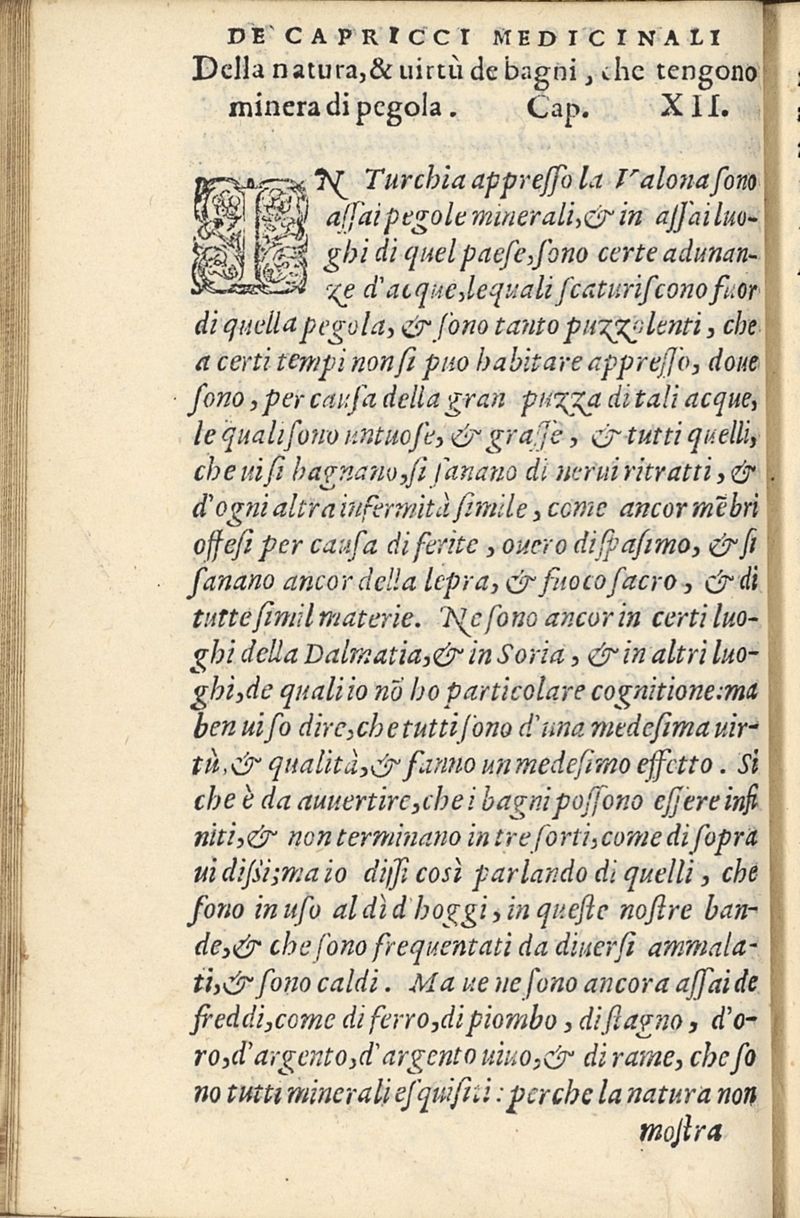 DE CAPRICCI MEDICINALI
Della natura, & uirtù de bagni, che tengono
minera di pegola. Cap. XII.
IN Turchia appreſſo la Valona ſono
aſſai pegole minerali, & in aſſai luo-
ghi di quel paeſe, ſono certe adunan-
ze d'acque, lequali ſcaturiſcono fuor
di quella pegola, & ſono tanto puzzolenti, che
a certi tempi non ſi puo habitare appreſſo, doue
ſono, per cauſa della gran puzza di tali acque,
le quali ſono untuoſe, & graſſe, & tutti quelli,
che ui ſi bagnano, ſi ſanano di nerui ritratti, &
d'ogni altra infermità ſimile, come ancor mẽbri
offeſi per cauſa di ferite, ouero diſpaſimo, & ſi
ſanano ancor della lepra, & fuoco ſacro, & di
tutte ſimil materie. Ne ſono ancor in certi luo-
ghi della Dalmatia, & in Soria, & in altri luo-
ghi, de quali io nõ ho particolare cognitione: ma
ben ui ſo dire, che tutti ſono d'una medeſima uir-
tù, & qualità, & fanno un medeſimo effetto. Si
che è da auuertire, che i bagni poſſono eſſere infi
niti, & non terminano in tre ſorti, come di ſopra
ui diſſi; ma io diſſi così parlando di quelli, che
ſono in uſo al dì d'hoggi, in queſte noſtre ban-
de, & che ſono frequentati da diuerſi ammala-
ti, & ſono caldi. Ma ue ne ſono ancora aſſai de
freddi, come di ferro, di piombo, di ſtagno, d'o-
ro, d'argento, d'argento uiuo, & di rame, che ſo
no tutti minerali eſquiſiti: perche la natura non
moſtra